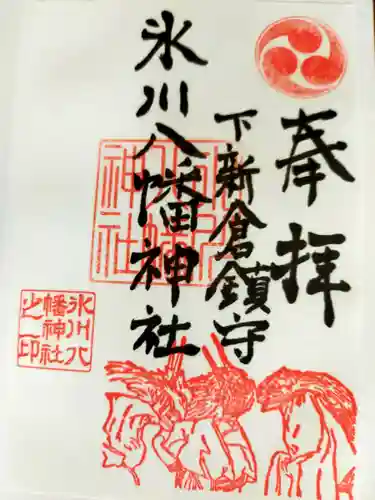 奉拝
下新倉鎮守
氷川八幡神社
氷川八
幡神社
之一印